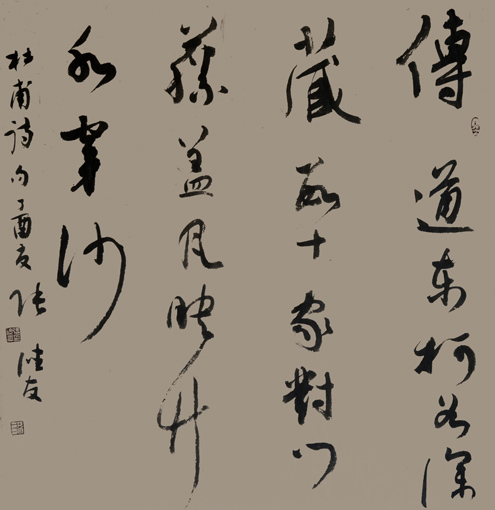 傳道東柯谷深
藏數十家對門
藤蓋瓦映竹
水穿沙
杜甫詩句丁酉夏張友